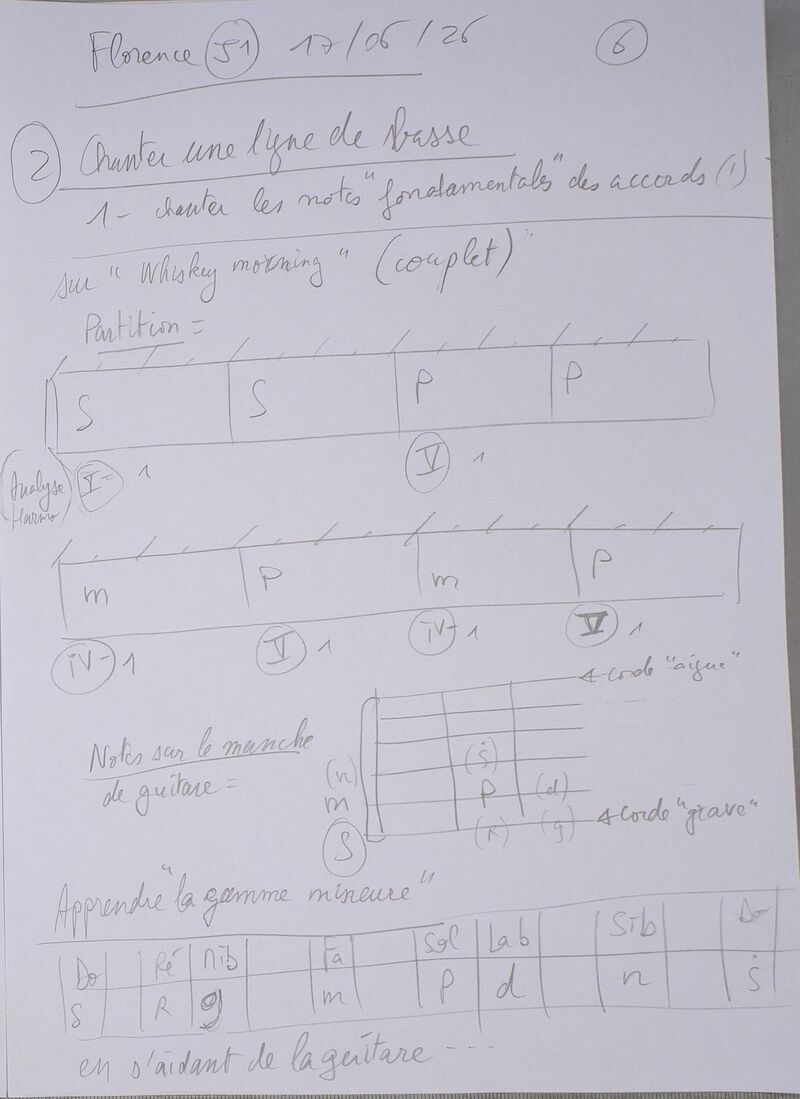 Florence S1 17/06/26 6
2 Chanter une ligne de basse
1- chanter les notes "fondamentales" des accords (1)
sur "Whiskey morning" (couplet)
Partition =
S S P P
Analyse Harmo I- 1 V 1
m P m P
iV- 1 V 1 iV- 1 V 1
corde "aigue"
Notes sur le manche de guitare =
(n) (ṡ)
m P (d)
S (R) (g) corde "grave"
Apprendre "la gamme mineure"
Do Ré Mib Fa Sol Lab Sib Do
S R g m P d n ṡ
en s'aidant de la guitare ---